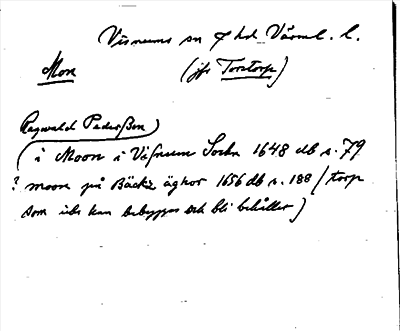 Visnums sn Visnums hd Värml. l.
Mon (jfr Torstorp)
Ragwald Pederßon)
(i Moon i Visnum Sockn 1648 db s. 79
? moon på Bäcks äghor 1656 db s. 188 / torp
som icke kan bebyggas och bli behållet)